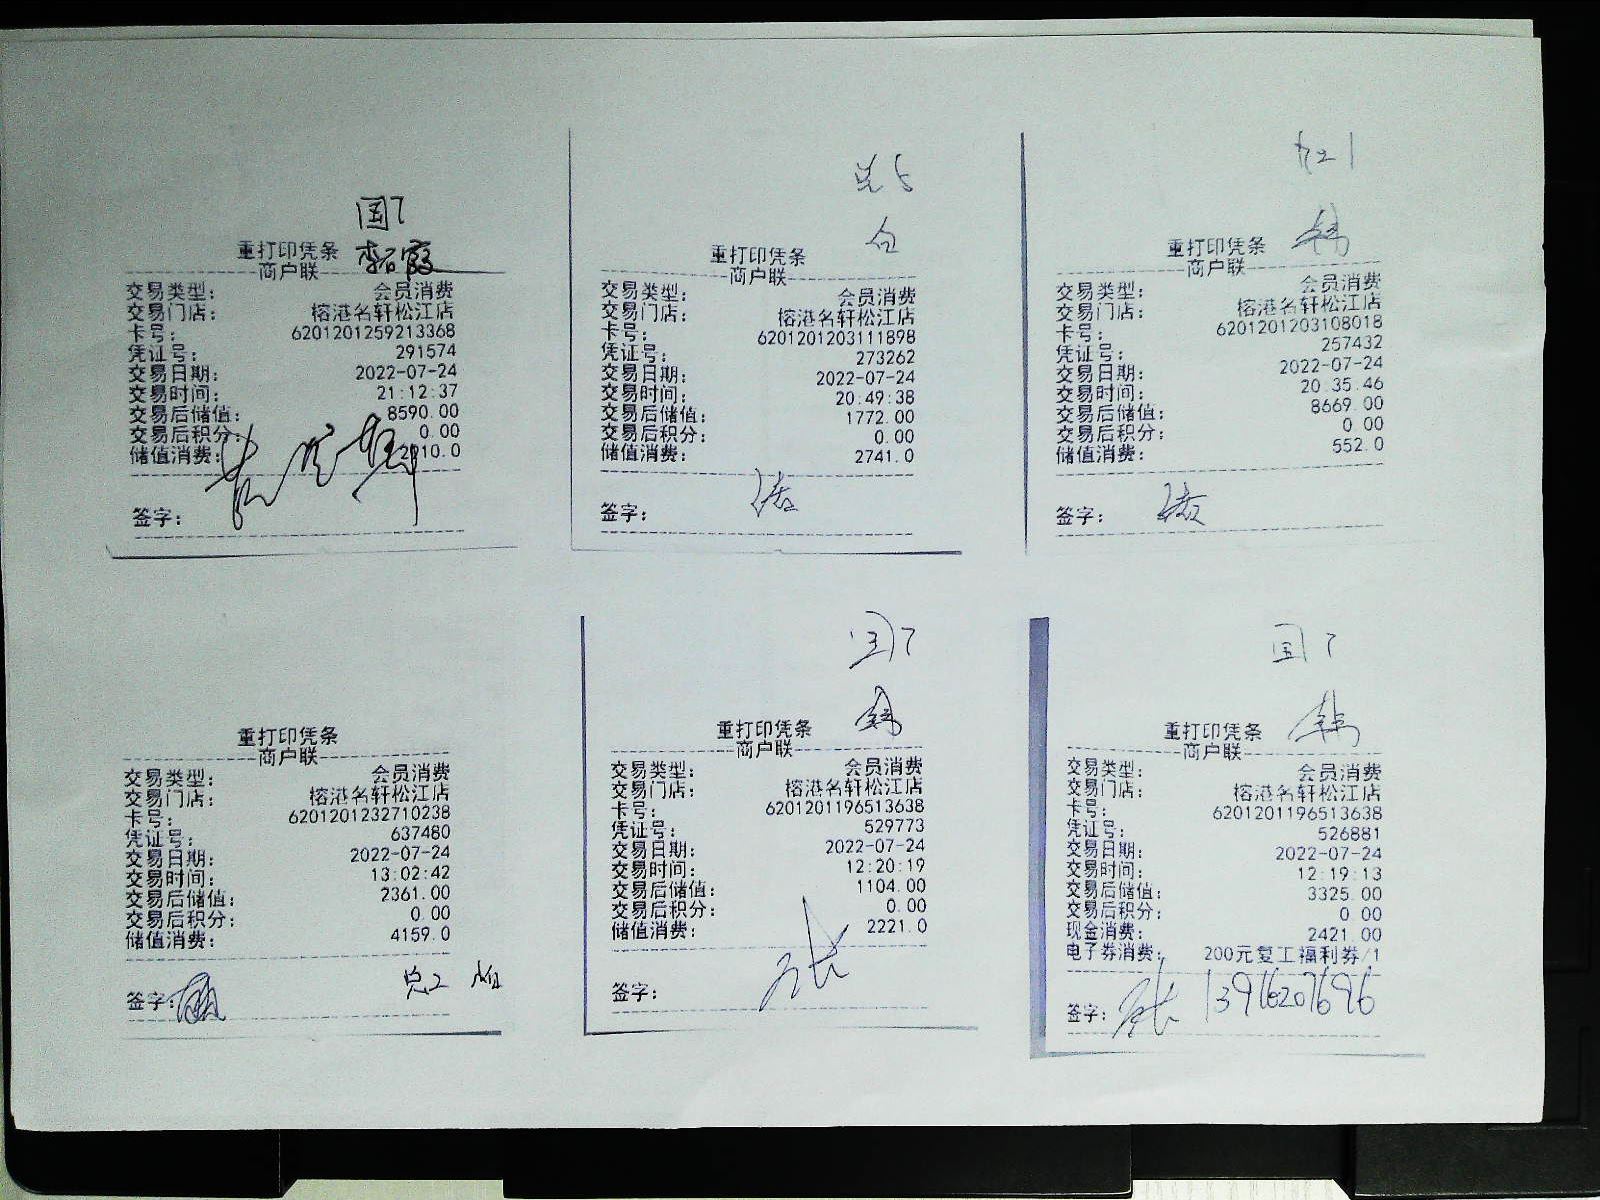 国7
重打印凭条
李石霞
商户联
交易类型： 会员消费
交易门店： 榕港名轩松江店
卡号： 6201201259213368
凭证号： 291574
交易日期： 2022-07-24
交易时间： 21:12:37
交易后储值： 8590.00
交易后积分： 0.00
储值消费： 2910.0
签字：
重打印凭条
商户联
交易类型： 会员消费
交易门店： 榕港名轩松江店
卡号： 6201201203111898
凭证号： 273262
交易日期： 2022-07-24
交易时间： 20:49:38
交易后储值： 1772.00
交易后积分： 0.00
储值消费： 2741.0
签字：
重打印凭条
商户联
交易类型： 会员消费
交易门店： 榕港名轩松江店
卡号： 6201201203108018
凭证号： 257432
交易日期： 2022-07-24
交易时间： 20:35:46
交易后储值： 8669.00
交易后积分： 0.00
储值消费： 552.0
签字：
重打印凭条
商户联
交易类型： 会员消费
交易门店： 榕港名轩松江店
卡号： 6201201232710238
凭证号： 637480
交易日期： 2022-07-24
交易时间： 13:02:42
交易后储值： 2361.00
交易后积分： 0.00
储值消费： 4159.0
签字：
国7
重打印凭条
商户联
交易类型： 会员消费
交易门店： 榕港名轩松江店
卡号： 6201201196513638
凭证号： 529773
交易日期： 2022-07-24
交易时间： 12:20:19
交易后储值： 1104.00
交易后积分： 0.00
储值消费： 2221.0
签字：
国7
重打印凭条
商户联
交易类型： 会员消费
交易门店： 榕港名轩松江店
卡号： 6201201196513638
凭证号： 526881
交易日期： 2022-07-24
交易时间： 12:19:13
交易后储值： 3325.00
交易后积分： 0.00
现金消费： 2421.00
电子券消费： 200元复工福利券/1
签字： 13916207696